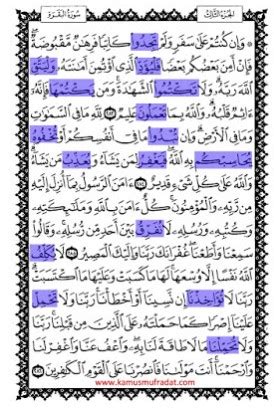 الجزء الثالث سورة البقرة
۞ وَإِن كُنتُمْ عَلَىٰ سَفَرٍ وَلَمْ تَجِدُوا كَاتِبًا فَرِهَانٌ مَّقْبُوضَةٌ ۖ
فَإِنْ أَمِنَ بَعْضُكُم بَعْضًا فَلْيُؤَدِّ الَّذِي اؤْتُمِنَ أَمَانَتَهُ وَلْيَتَّقِ
اللَّهَ رَبَّهُ ۗ وَلَا تَكْتُمُوا الشَّهَادَةَ ۚ وَمَن يَكْتُمْهَا فَإِنَّهُ
آثِمٌ قَلْبُهُ ۗ وَاللَّهُ بِمَا تَعْمَلُونَ عَلِيمٌ ٢٨٣ لِّلَّهِ مَا فِي السَّمَاوَاتِ
وَمَا فِي الْأَرْضِ ۗ وَإِن تُبْدُوا مَا فِي أَنفُسِكُمْ أَوْ تُخْفُوهُ
يُحَاسِبْكُم بِهِ اللَّهُ ۖ فَيَغْفِرُ لِمَن يَشَاءُ وَيُعَذِّبُ مَن يَشَاءُ ۗ
وَاللَّهُ عَلَىٰ كُلِّ شَيْءٍ قَدِيرٌ ٢٨٤ آمَنَ الرَّسُولُ بِمَا أُنزِلَ إِلَيْهِ
مِن رَّبِّهِ وَالْمُؤْمِنُونَ ۚ كُلٌّ آمَنَ بِاللَّهِ وَمَلَائِكَتِهِ
وَكُتُبِهِ وَرُسُلِهِ لَا نُفَرِّقُ بَيْنَ أَحَدٍ مِّن رُّسُلِهِ ۚ وَقَالُوا
سَمِعْنَا وَأَطَعْنَا ۖ غُفْرَانَكَ رَبَّنَا وَإِلَيْكَ الْمَصِيرُ ٢٨٥ لَا يُكَلِّفُ
اللَّهُ نَفْسًا إِلَّا وُسْعَهَا ۚ لَهَا مَا كَسَبَتْ وَعَلَيْهَا مَا اكْتَسَبَتْ ۗ
رَبَّنَا لَا تُؤَاخِذْنَا إِن نَّسِينَا أَوْ أَخْطَأْنَا ۚ رَبَّنَا وَلَا تَحْمِلْ
عَلَيْنَا إِصْرًا كَمَا حَمَلْتَهُ عَلَى الَّذِينَ مِن قَبْلِنَا ۚ رَبَّنَا
وَلَا تُحَمِّلْنَا مَا لَا طَاقَةَ لَنَا بِهِ ۖ وَاعْفُ عَنَّا وَاغْفِرْ لَنَا
وَارْحَمْنَا ۚ أَنتَ مَوْلَانَا فَانصُرْنَا عَلَى الْقَوْمِ الْكَافِرِينَ ٢٨٦
www.kamusmufradat.com